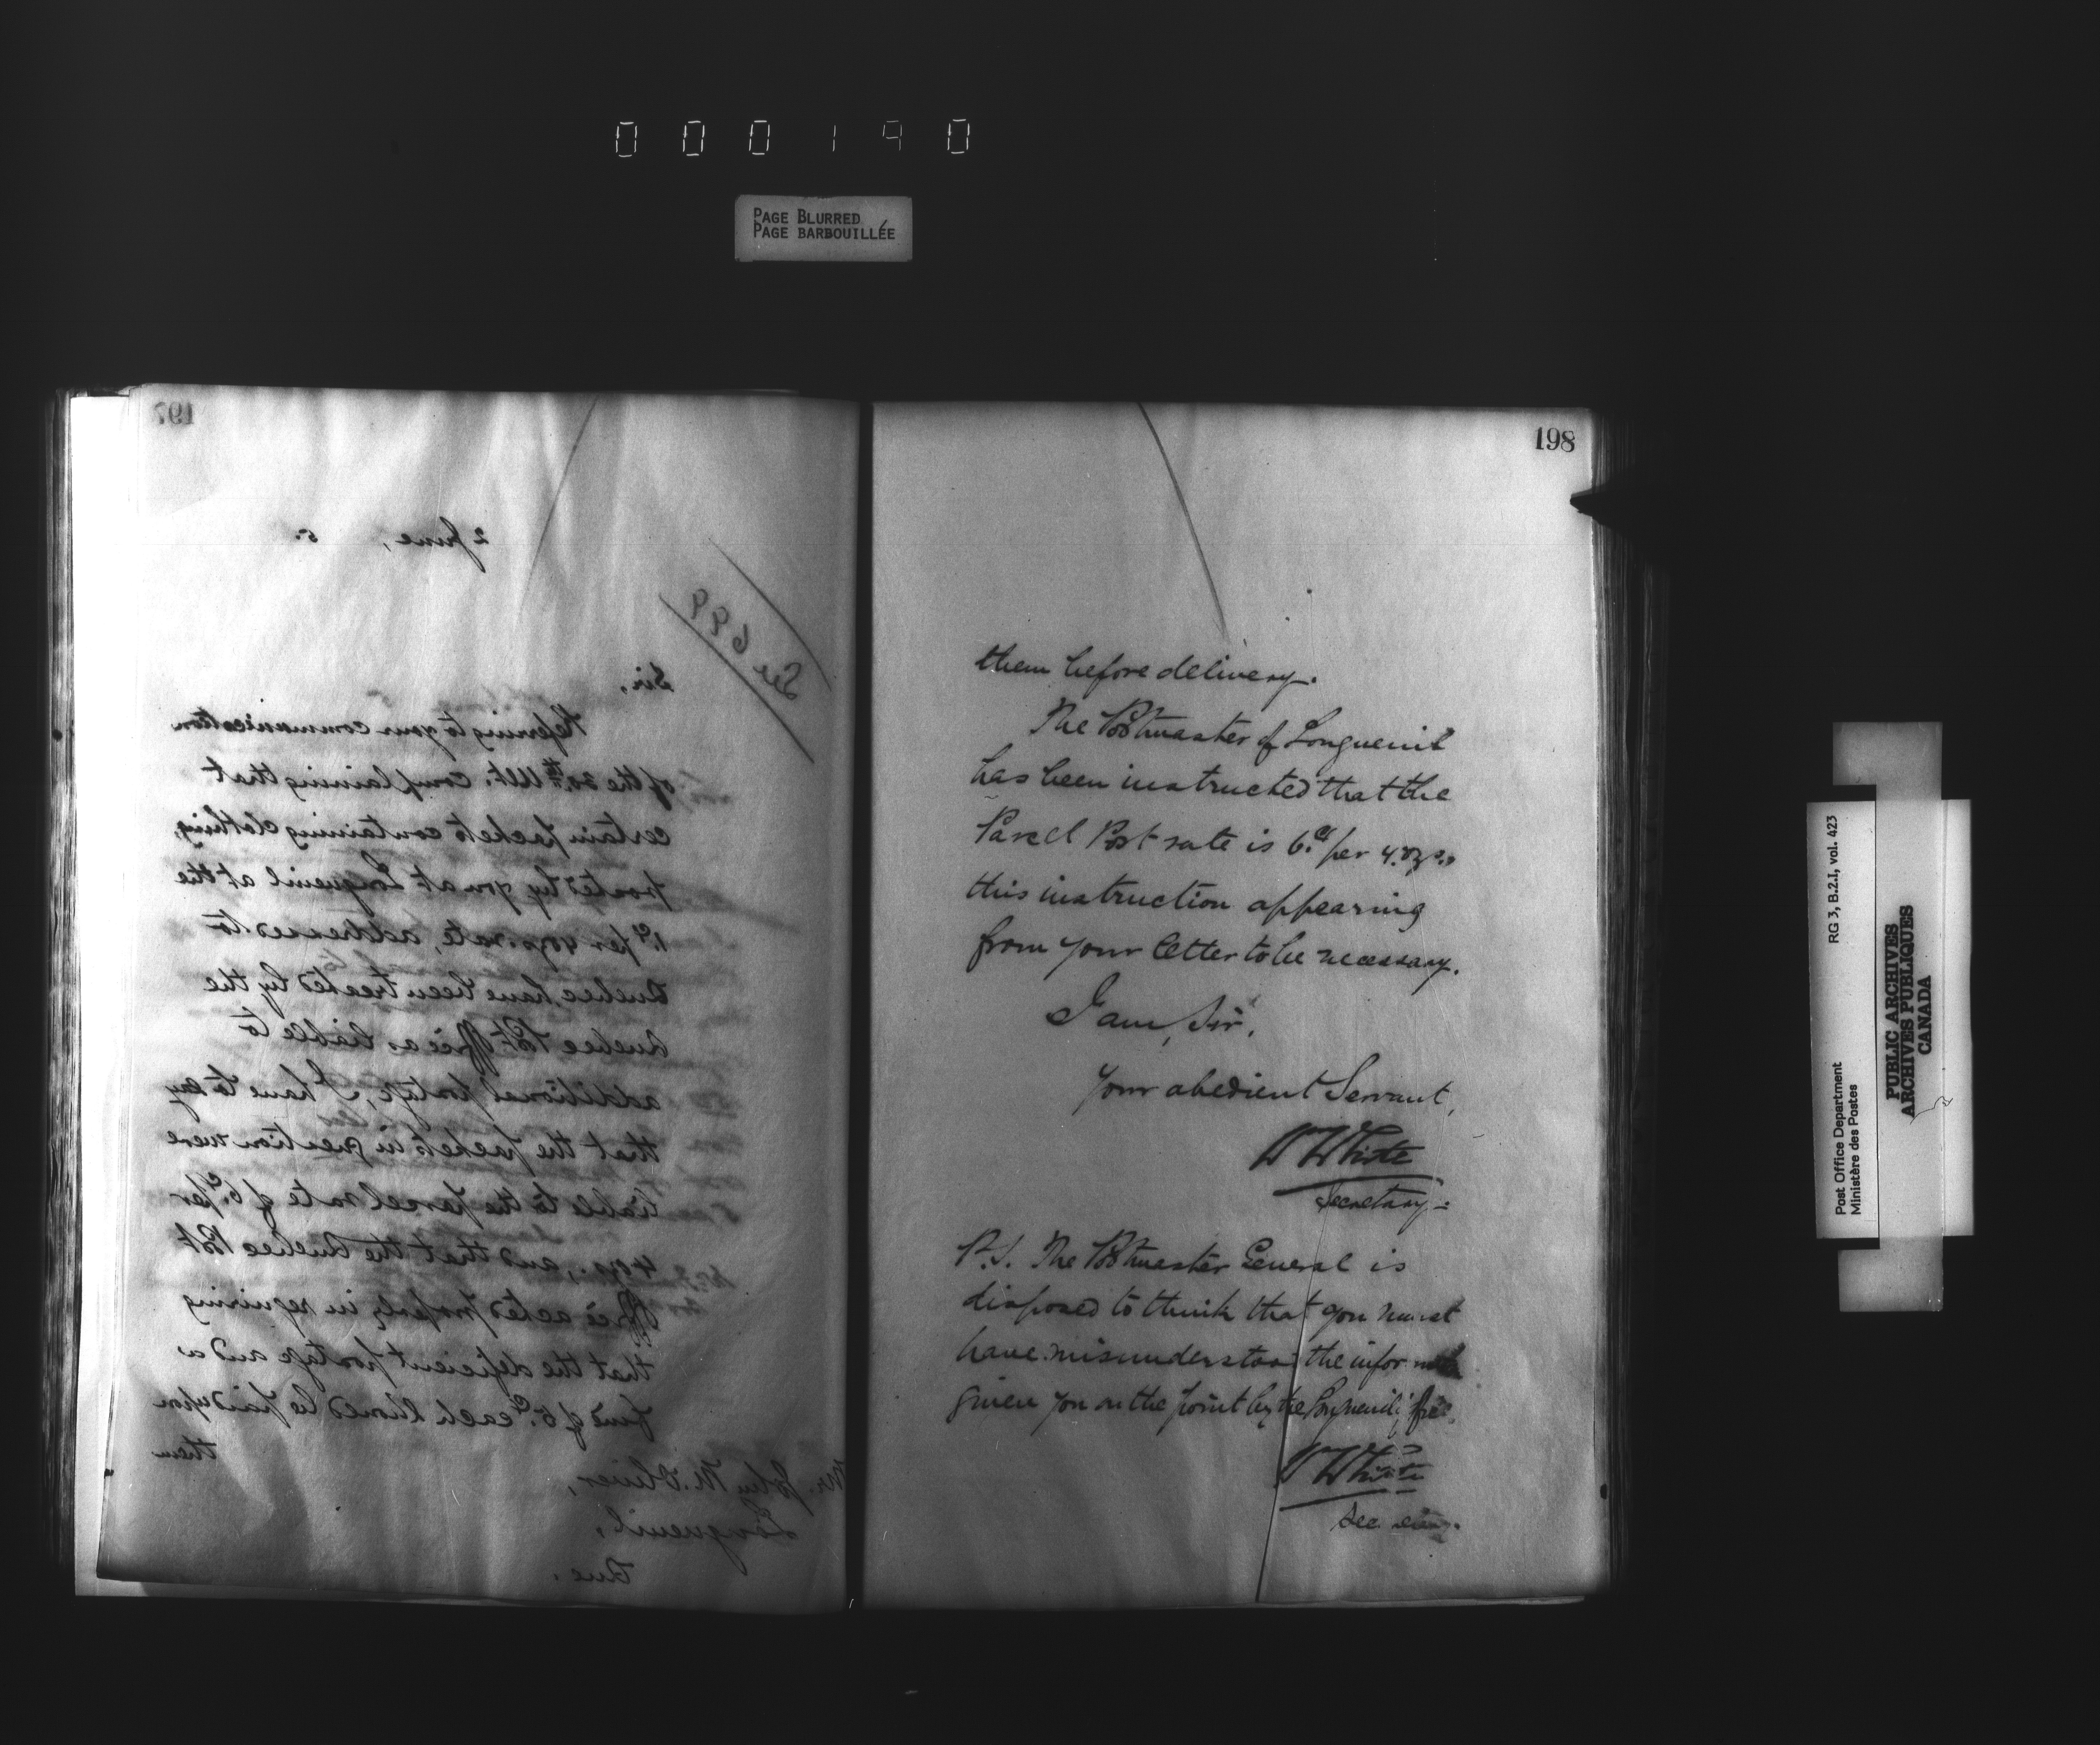 000190
PAGE BLURRED
PAGE BARBOUILLÉE
197
2 June, 5.
See 699
Sir,
Referring to your communication
of the 30th Ult. complaining that
certain packets containing clothing,
posted by you at Longueuil at the
1.ct per 4 ozs. rate, addressed to
Quebec, have been treated by the
Quebec Post Office as liable to
additional postage, I have to say
that the packets in question were
liable to the parcel rate of 6.c per
4 ozs., and that the Quebec Post
Office acted properly in requiring
that the deficient postage and a
fine of 5.c each should be paid upon
them
Mr. John M. Oliver,
Longueuil,
Que.
198
them before delivery.
The Postmaster of Longueuil
has been instructed that the
Parcel Post rate is 6.cts per 4.ozs.,
this instruction appearing
from your letter to be necessary.
I am, Sir,
Your obedient Servant,
W White
Secretary.
P.S. The Postmaster General is
disposed to think that you must
have misunderstood the
given you on the point by the Longueuil
W White
Secretary.
Post Office Department
Ministère des Postes
RG 3, B.2.I, vol. 423
PUBLIC ARCHIVES
ARCHIVES PUBLIQUES
CANADA